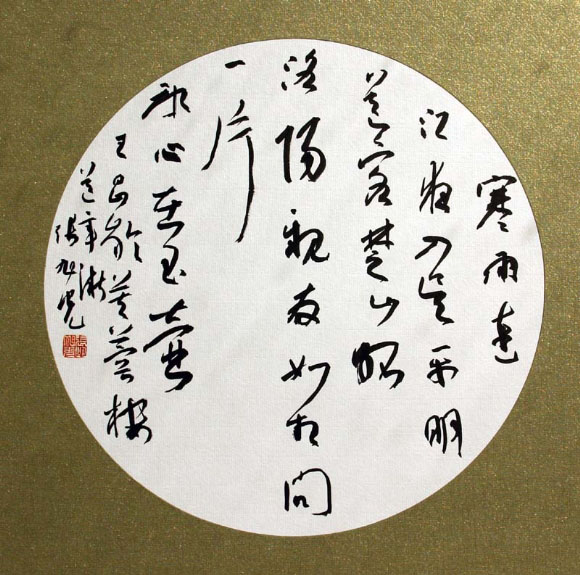 寒雨連
江夜入吳平明
送客楚山孤
洛陽親友如相問
一片
冰心在玉壺
王昌齡芙蓉樓
送辛漸
張旭光